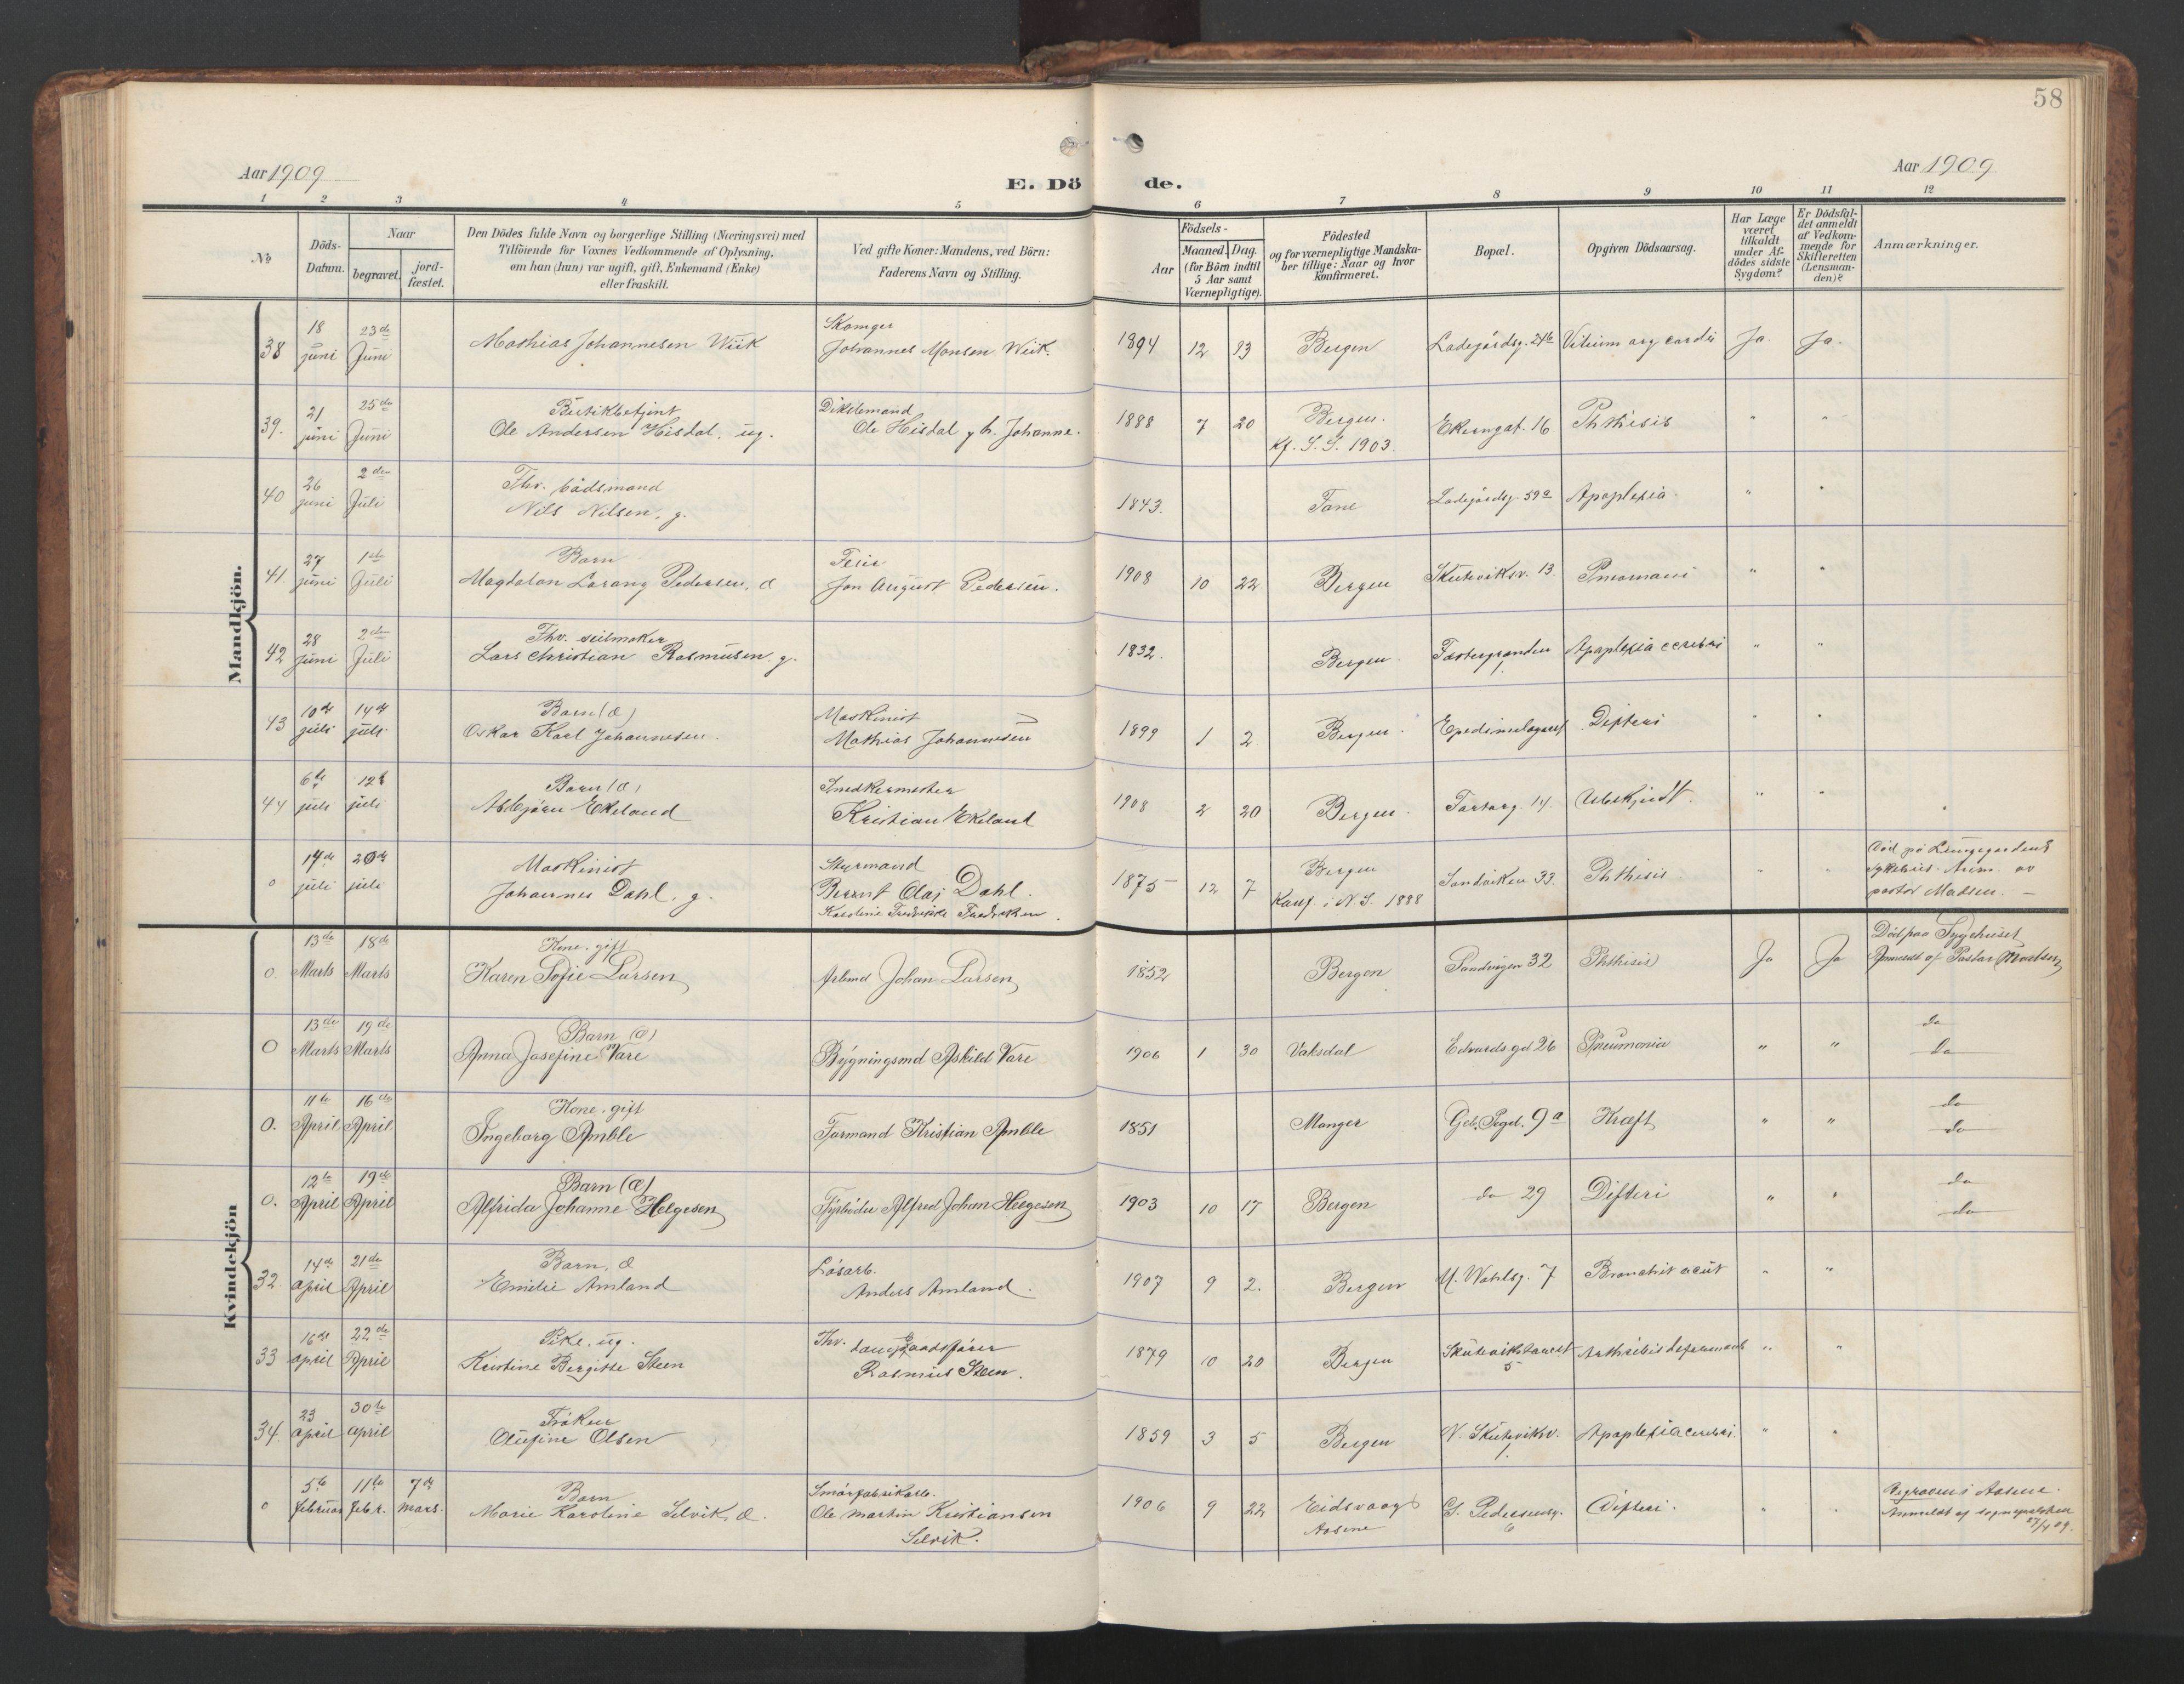 58
Aar 1909
E. Dö
de.
Aar 1909
1 2 3 4 5 6 7 8 9 10 11 12
№
Döds-
Datum.
Naar
begravet.
jord-
fæstet.
Den Dödes fulde Navn og borgerlige Stilling (Næringsvei) med
Tilföiende for Voxnes Vedkommende af Oplysning,
om han (hun) var ugift, gift, Enkemand (Enke)
eller fraskilt.
Ved gifte Koner: Mandens, ved Börn:
Faderens Navn og Stilling.
Födsels-
Aar
Maaned. Dag.
(for Börn indtil
5 Aar samt
Værnepligtige).
Födested
og for værnepligtige Mandska-
ber tillige: Naar og hvor
konfirmeret.
Bopæl.
Opgiven Dödsaarsag.
Har Læge
været
tilkaldt
under Af-
dödes sidste
Sygdom?
Er Dödsfal-
det anmeldt
af Vedkom-
mende for
Skifteretten
(Lensman-
den)?
Anmærkninger.
Mandkjön.
38 18 juni 23de Juni Mathias Johannesen Wiik Johannes Monsen Wiik. 1894 12 13 Bergen Ladegårdsg. 24b Vitium org cordis Ja. Ja.
39. 21 juni 25de Juni
Butikbetjent
Ole Andersen Hisdal, ug.
Ole Hisdal g h. Johanne. 1888 7 20 Bergen.
Kf. S. S. 1903.
Ekerngat. 16. Phthisis " "
40 26 juni 2den Juli
Thv. bådsmand
Nils Nilsen, g.
1843. Fane Ladegårdsg. 59a Apoplexia " "
41. 27 juni 1ste Juli
Barn
Magdalon Pedersen, æ
Feier
Jon August Pedersen.
1908 10 22 Bergen Skuteviksv. 13. " "
42 28 juni 2den Juli
Thv. seilmaker
Lars Christian Rasmusen. g.
1832. Bergen. 1 Apoplexia cerebri " "
43 10de juli 14de juli
Barn (æ)
Oskar Karl Johannesen.
Maskinist
Mathias Johannesen
1899 1 2 Bergen. Difteri " "
44 6te juli 12te juli
Barn (æ)
Asbjørn Ekeland
Snedkermester
Kristian Ekeland
1908 2 20 Bergen. 14. Ubekjendt. " "
0 14de juli 20de juli
Maskinist
Johannes Dahl, g.
Styrmand
Bernt Olaj Dahl.
1875 12 7 Bergen
Konf. i N. S. 1888
Sandviken 33. Phthisis " "
Død på Lungegaardens
sykehus. Anm. av
pastor Madsen. —
Kvindekjön
0. 13de Marts 18de Marts
Kone. gift
Karen Sofie Larsen
Arbmd Johan Larsen
1852 Bergen 32 Phthisis Ja Ja
Död paa Sygehuset
Anmeldt af Pastor Madsen
0 13de Marts 19de Marts
Barn (æ)
Anna Josefine Vare
Bygningsmd Askild Vare
1906 1 30 Vaksdal Edvardsgd 26 Pneumonia " "
do
do
0. 11te April 16de April
Kone. gift
Ingeborg Amble
Formand Kristian Amble
1851 Manger 9a Kræft " "
do
do
0. 12te April 19de April
Barn (æ)
Alfrida Johanne Helgesen
Fyrböder Alfred Johan Helgesen
1903 10 17 Bergen do 29 Difteri " "
do
do
32. 14de April 21de April
Barn, æ
Emilie Amland
Løsarb.
Anders Amland.
1907 9 2. Bergen 7 Bronchit acut " "
33 16de april 22de April
Pike, ug.
Kristine Bergitte Steen
Thv.
Rasmus Steen.
1879 10 20 Bergen 5 " "
34. 23 april 30te april
Frøken
Olufine Olsen
1859 3 5 Bergen N. Skuteviksv.
1.
Apoplexia cerebri. " "
0 5te februar 11te febr. 7de mars.
Barn
Marie Karoline Selvik, æ.
Smørfabrikarb.
Ole Martin Kristiansen
Selvik.
1906 9 22 Eidsvaag
Aasene
6
Difteri. " "
Begraven i Aasene.
Anmeldt af sognepresten
27/4 09.